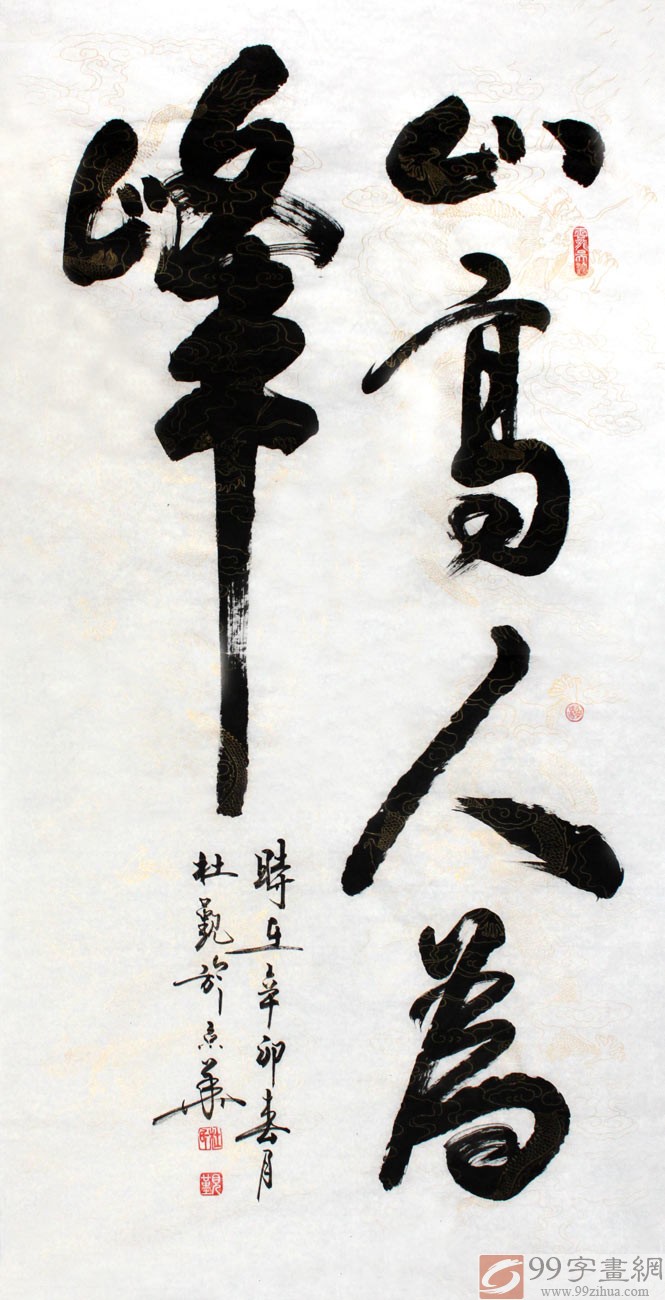 山高人为
峰
時在辛卯春月
杜觐於京華
99字畫網
www.99zihua.com